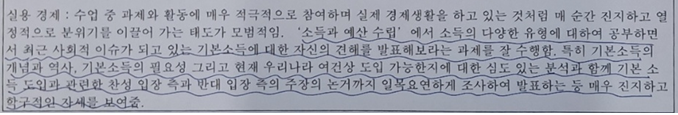 실용 경제 : 수업 중 과제와 활동에 매우 적극적으로 참여하며 실제 경제생활을 하고 있는 것처럼 매 순간 진지하고 열
정적으로 분위기를 이끌어 가는 태도가 모범적임. ‘소득과 예산 수립’에서 소득의 다양한 유형에 대하여 공부하면
서 최근 사회적 이슈가 되고 있는 기본소득에 대한 자신의 견해를 발표해보라는 과제를 잘 수행함. 특히 기본소득의
개념과 역사, 기본소득의 필요성 그리고 현재 우리나라 여건상 도입 가능한지에 대한 심도 있는 분석과 함께 기본 소
득 도입과 관련한 찬성 입장 측과 반대 입장 측의 주장의 논거까지 일목요연하게 조사하여 발표하는 등 매우 진지하고
학구적인 자세를 보여줌.